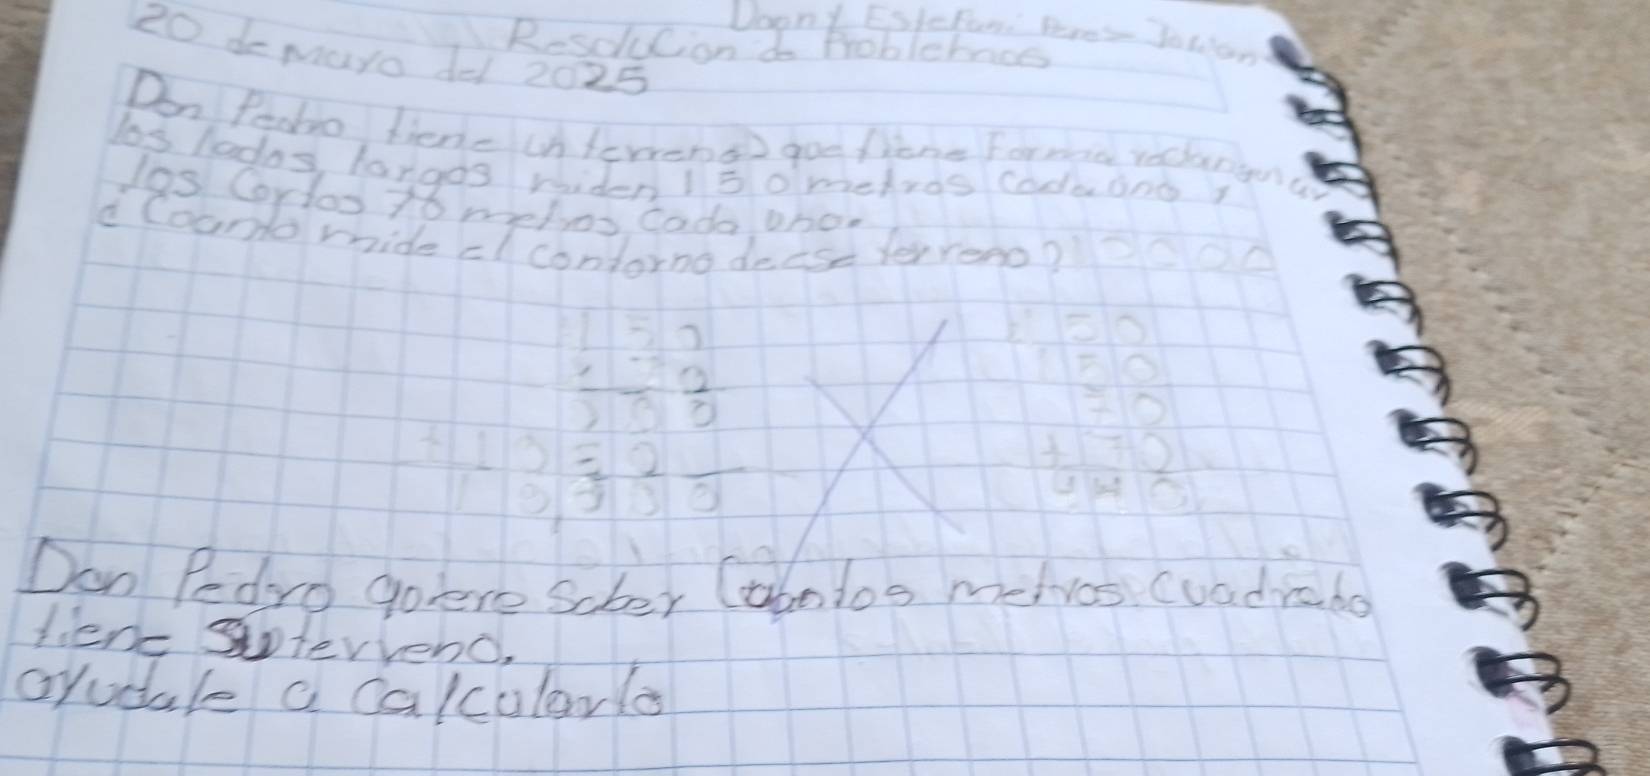 Resolucion de Problemas
20 de Mayo del 2025
Don Pedro tiene un terreno que tiene Forma rectangular
los lados largos miden 150 metros cada ono y
los Cortos 70 metros cada ono.
¿Coanto mide el contorno de ese terreno?
150 150
70 150
000 70
+1050 +70
10,500 440
Don Pedro qoiere Saber Coantos metros Cuadrado
tiene Su terreno.
ayudale a Calcularlo